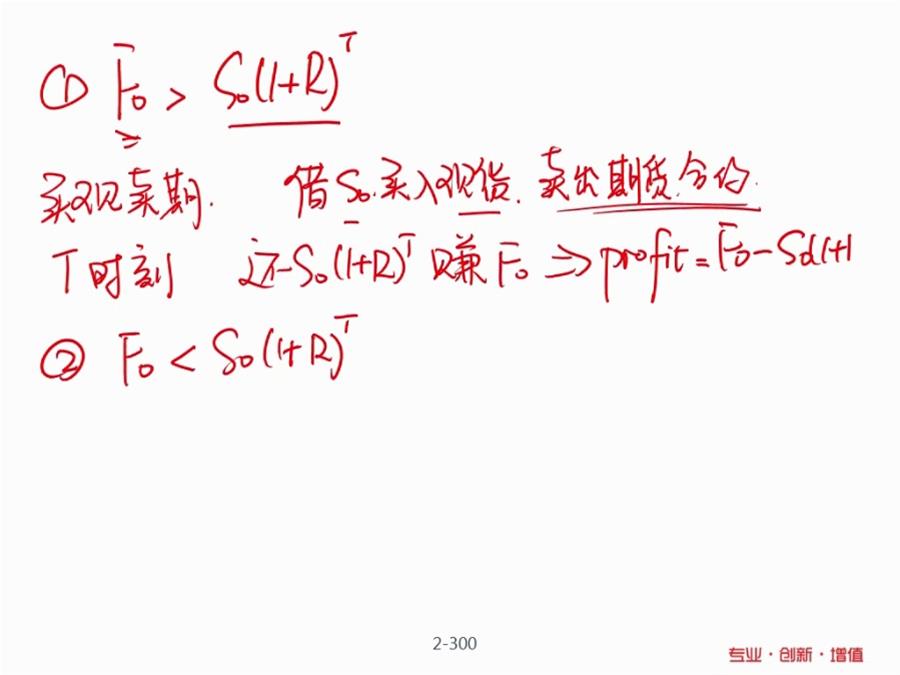 ① F₀ > S₀(1+R)^T
买现卖期. 借S₀.买入现货. 卖出期货合约.
T时刻 还-S₀(1+R)^T 赚F₀ ⇒ profit = F₀-S₀(1+
② F₀ < S₀(1+R)^T
2-300
专业·创新·增值